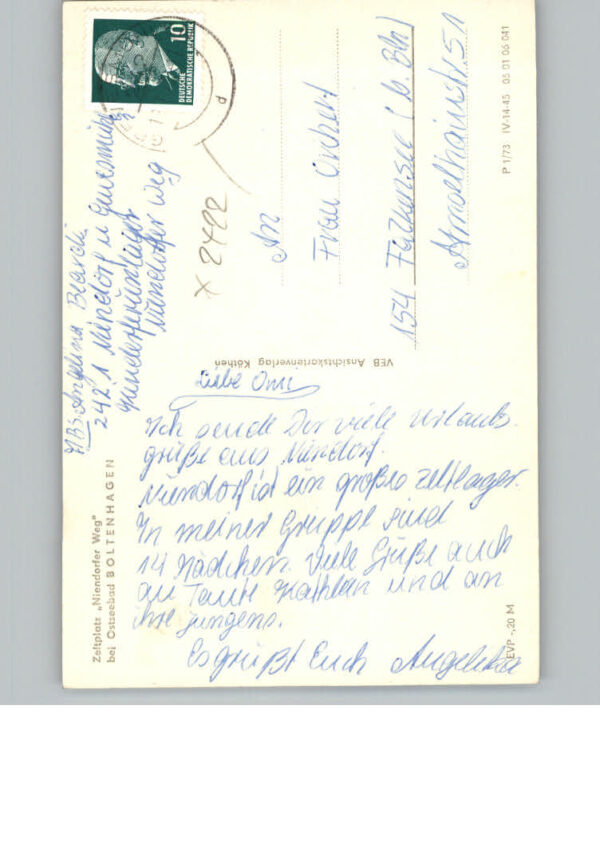 Liebe Omi
Ich sende Dir viele Urlaubs-
grüße aus Niendorf.
Niendorf ist ein großes Zeltlager.
In meiner Gruppe sind
14 Mädchen. Viele Grüße auch
an Tante Kathleen und an
ihre Jungens.
Es grüßt Euch Angelika
Zeltplatz „Niendorfer Weg"
bei Ostseebad BOLTENHAGEN
VEB Ansichtskartenverlag Köthen
EVP -,20 M
Angelina
2421 Niendorf
Niendorfer Weg
x 2422
10
DEUTSCHE
DEMOKRATISCHE REPUBLIK
d
An
Frau
154 Falkensee (b. Bln)
51
P 1/73 IV-14-45 05 01 06 041